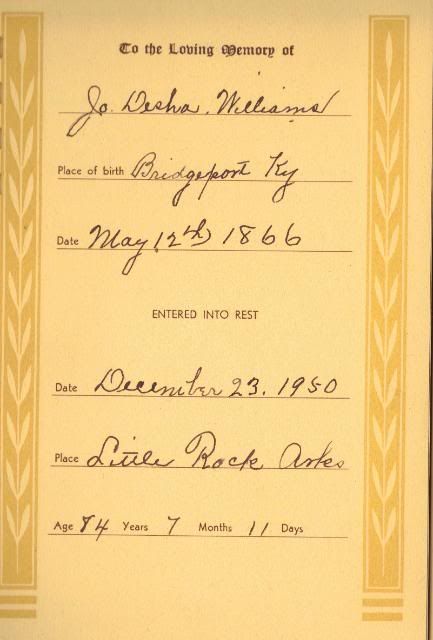 To the Loving Memory of
Jo. Desha. Williams
Place of birth Bridgeport Ky
Date May 12th 1866
ENTERED INTO REST
Date December 23. 1950
Place Little Rock Arks
Age 84 Years 7 Months 11 Days